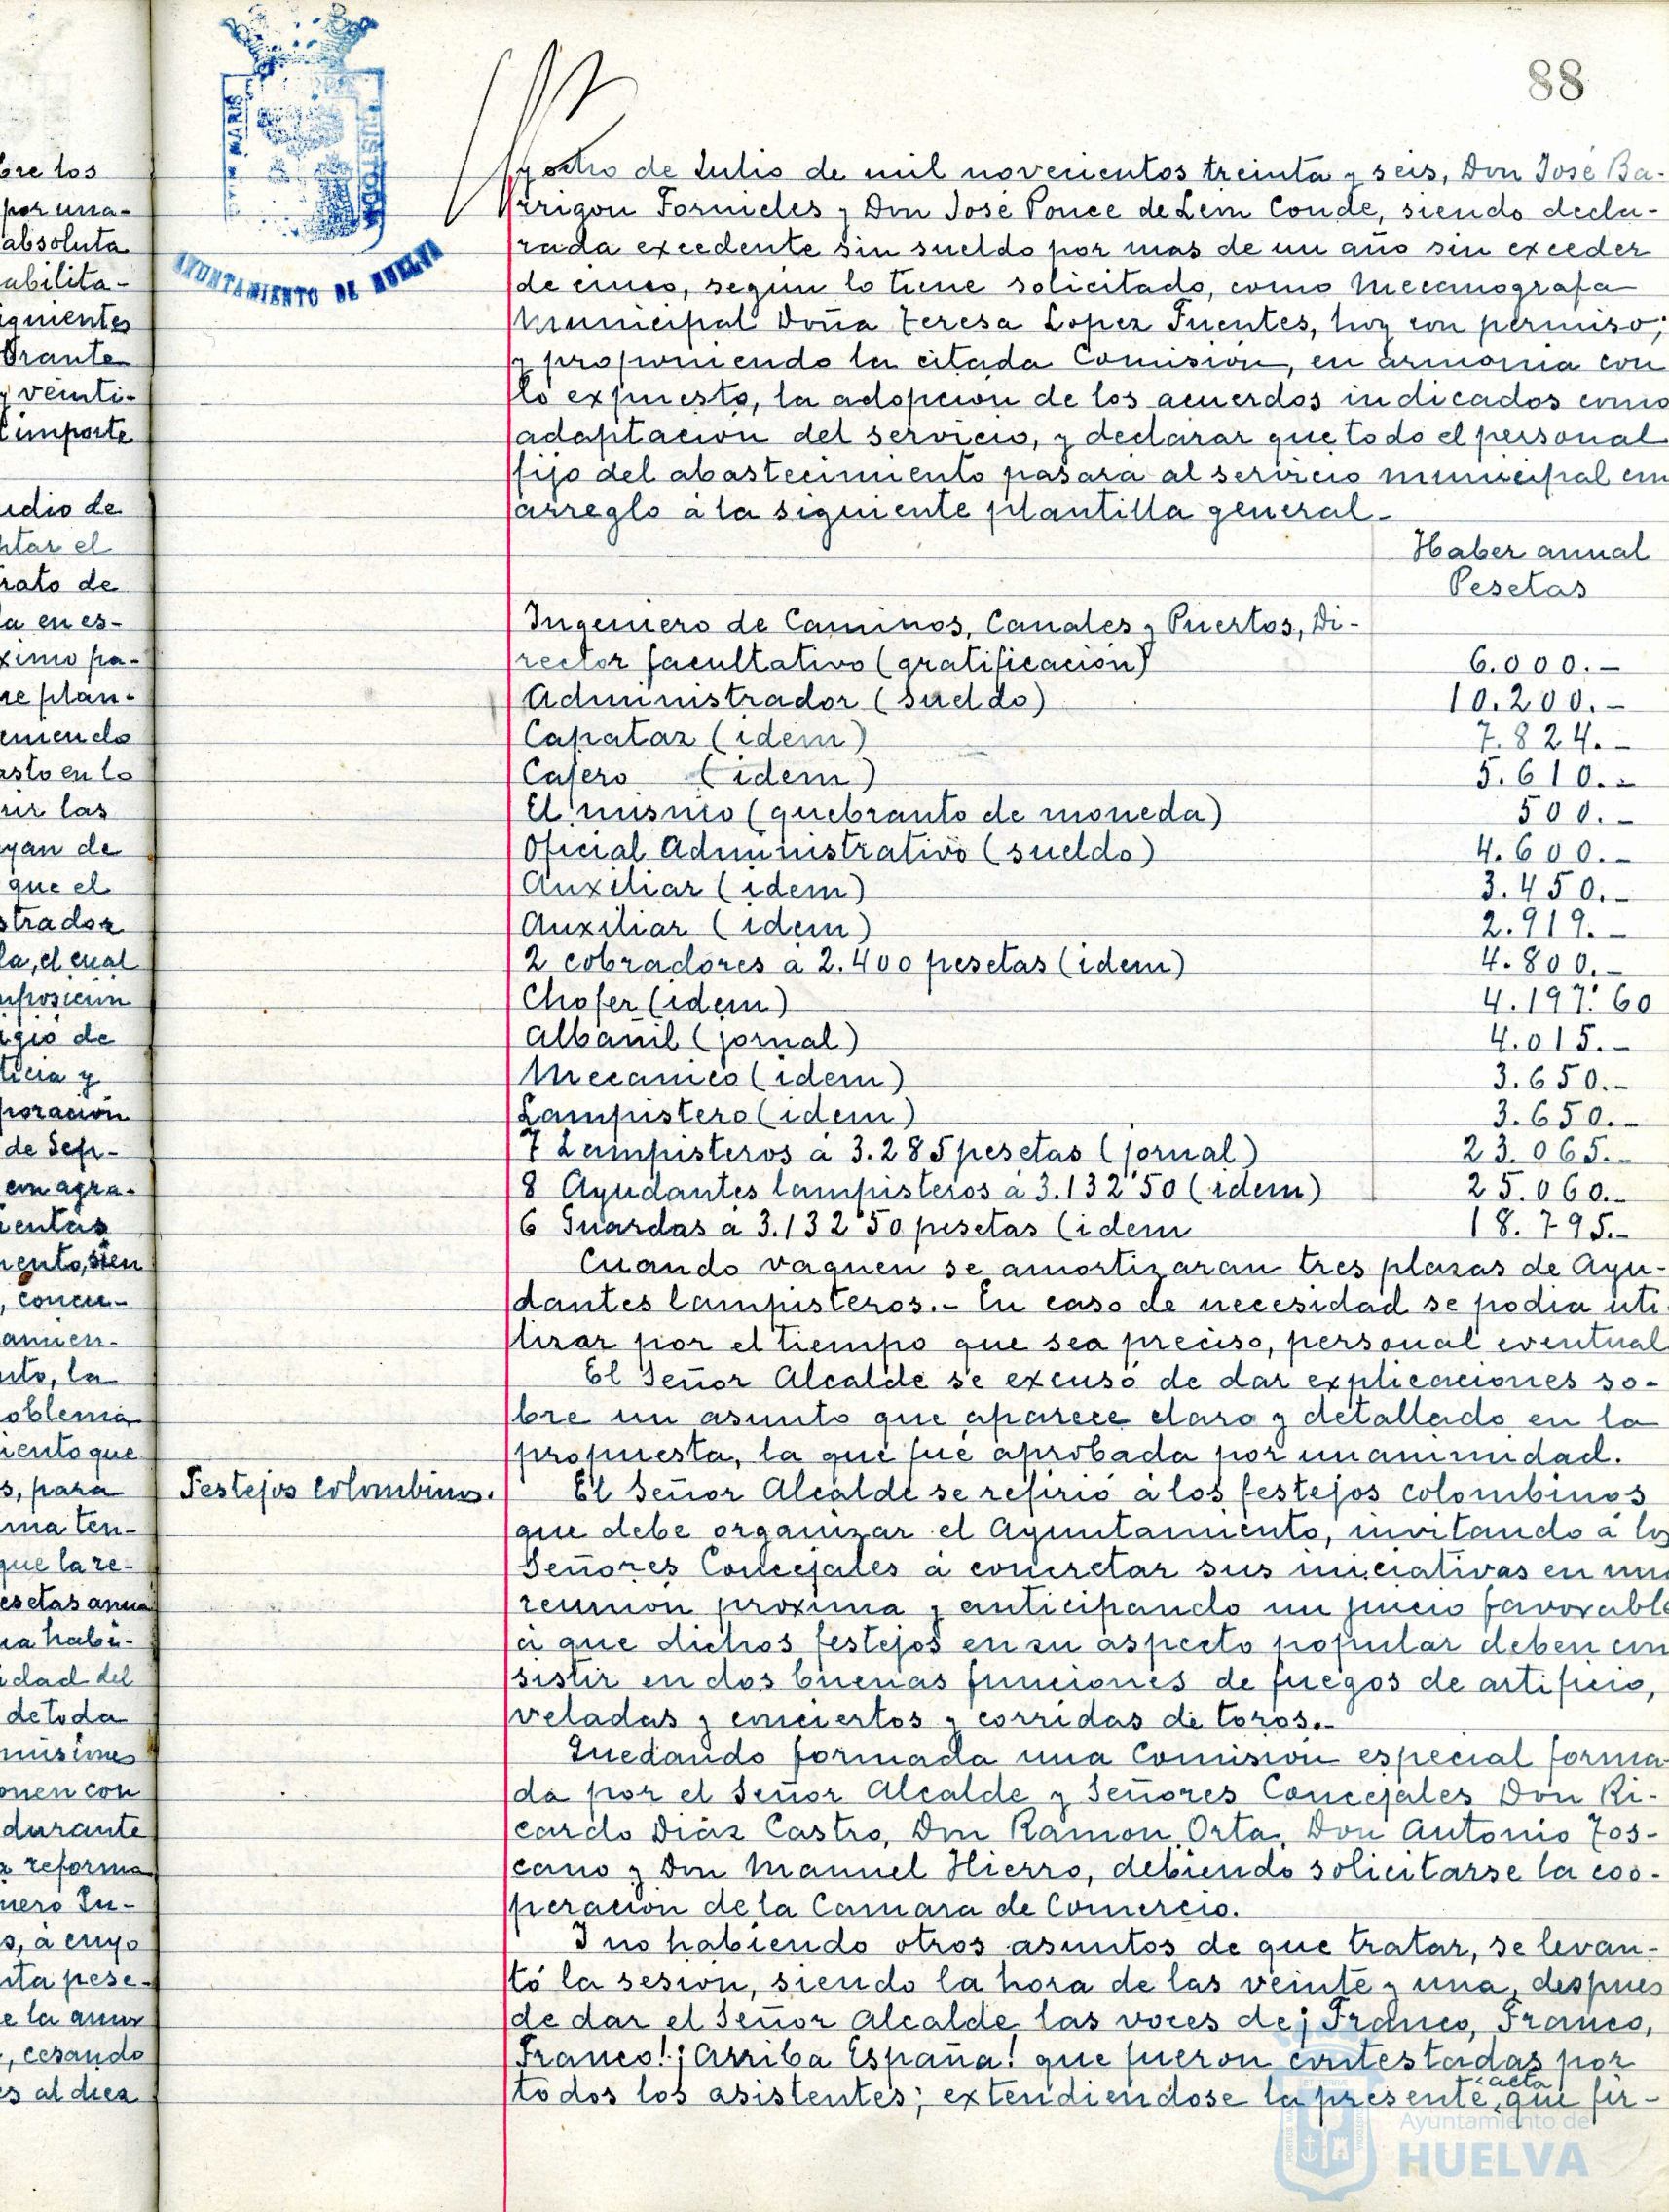 88
AYUNTAMIENTO DE HUELVA
bre los
por una-
absoluta
abilita-
iguientes
brante
y veinti-
l importe
udio de
ptar el
rato de
la en es-
ximo pa-
re plan-
eniendo
asto en lo
uir las
ayan de
que el
strador
la, el cual
mposicion
igió de
ticia y
poración
de Sep-
con agra-
ientas
iento, sien
, concu-
amien-
uto, la
oblema
iento que
s, para
ma ten-
que la re-
esetas anua
na habi-
idad del
de toda
misiones
onen con
durante
a reforma
niero In-
s, a cuyo
nta pese-
, cesando
es al diez
y ocho de Julio de mil novecientos treinta y seis, Don José Ba-
rrigon Fornieles y Don José Ponce de Leon Conde, siendo decla-
rada excedente sin sueldo por mas de un año sin exceder
de cinco, segun lo tiene solicitado, como Mecanografa
Municipal Doña Teresa Lopez Fuentes, hoy con permiso;
y proponiendo la citada Comisión, en armonia con
lo expuesto, la adopcion de los acuerdos indicados como
adaptacion del servicio, y declarar que todo el personal
fijo del abastecimiento pasará al servicio municipal con
arreglo á la siguiente plantilla general.-
Haber anual
Pesetas
Ingeniero de Caminos, Canales y Puertos, Di-
rector facultativo (gratificación) 6.000.-
Administrador (sueldo) 10.200.-
Capataz (idem) 7.824.-
Cajero (idem) 5.610.-
El mismo (quebranto de moneda) 500.-
Oficial Administrativo (sueldo) 4.600.-
Auxiliar (idem) 3.450.-
Auxiliar (idem) 2.919.-
2 cobradores a 2.400 pesetas (idem) 4.800.-
Chofer (idem) 4.197'60
Albañil (jornal) 4.015.-
Mecanico (idem) 3.650.-
Lampistero (idem) 3.650.-
7 Lampisteros a 3.285 pesetas (jornal) 23.065.-
8 Ayudantes lampisteros á 3.132'50 (idem) 25.060.-
6 Guardas a 3.132'50 pesetas (idem 18.795.-
Cuando vaquen se amortizaran tres plazas de Ayu-
dantes lampisteros.- En caso de necesidad se podia uti-
lizar por el tiempo que sea preciso, personal eventual
El Señor Alcalde se excusó de dar explicaciones so-
bre un asunto que aparece claro y detallado en la
propuesta, la que fué aprobada por unanimidad.
Festejos colombinos.
El Señor Alcalde se refirió á los festejos colombinos
que debe organizar el Ayuntamiento, invitando á los
Señores Concejales á concretar sus iniciativas en una
reunion proxima y anticipando un juicio favorable
á que dichos festejos en su aspecto popular deben con
sistir en dos buenas funciones de fuegos de artificio,
veladas y conciertos y corridas de toros.-
Quedando formada una Comisión especial forma-
da por el Señor Alcalde y Señores Concejales Don Ri-
cardo Diaz Castro, Don Ramon Orta, Don Antonio Tos-
cano y Don Manuel Hierro, debiendo solicitarse la coo-
peración de la Camara de Comercio.
I no habiendo otros asuntos de que tratar, se levan-
tó la sesion, siendo la hora de las veinte y una, despues
de dar el Señor Alcalde las voces de ¡Franco, Franco,
Franco! ¡Arriba España! que fueron contestadas por
todos los asistentes; extendiendose la presente acta, que fir-
Ayuntamiento de
HUELVA